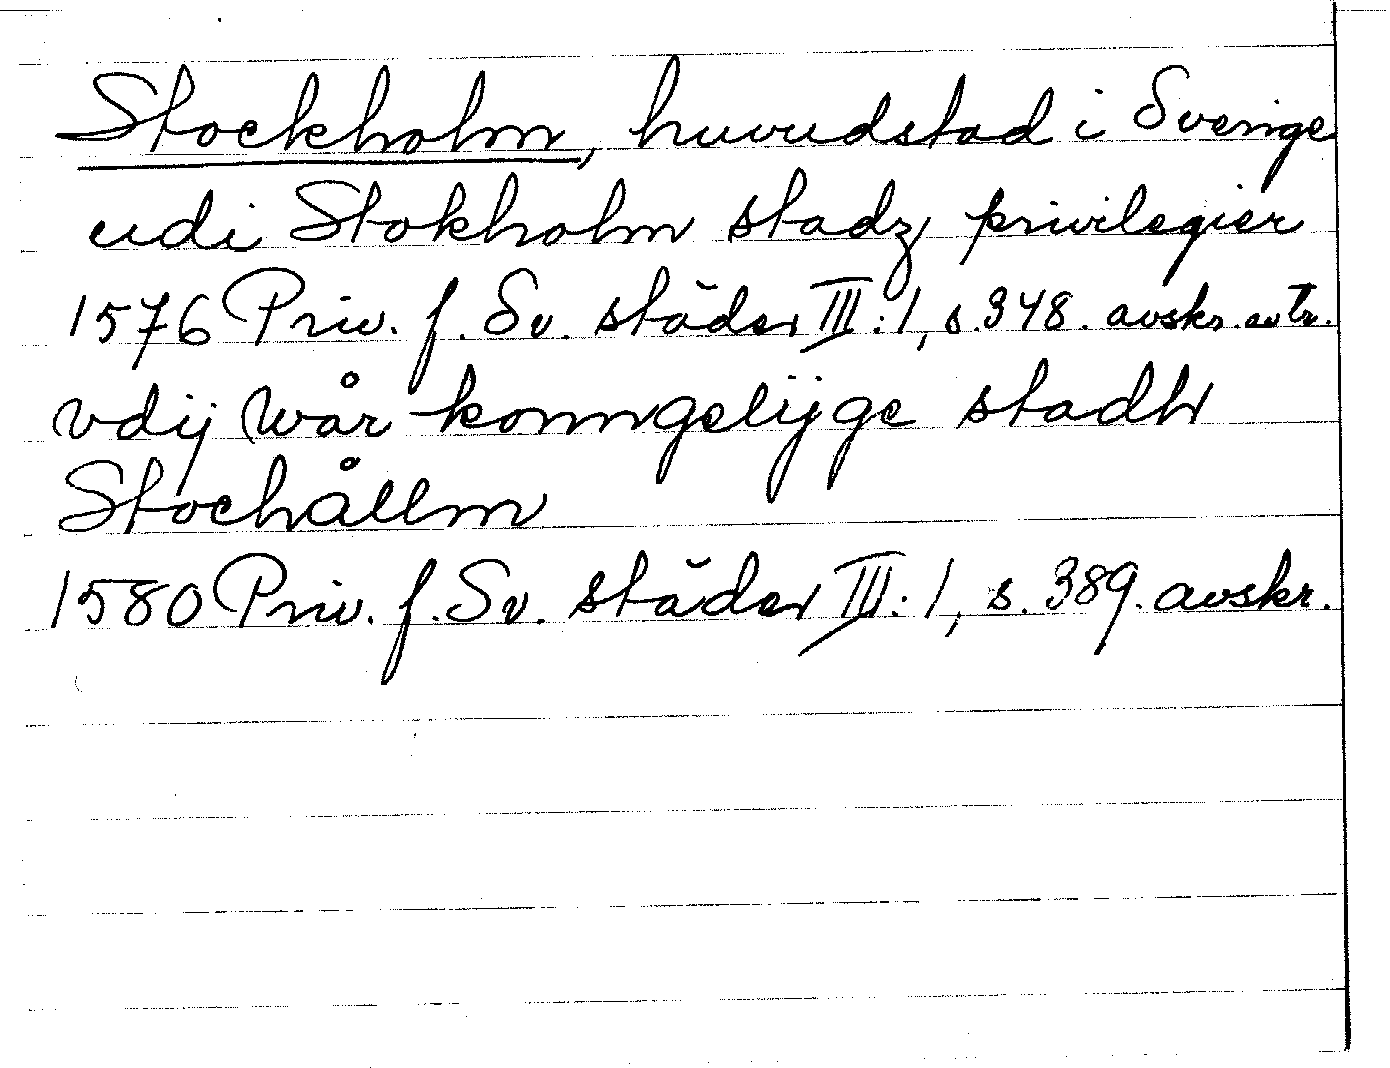 Stockholm, huvudstad i Sverige
udi Stokholm stadz privilegier
1576 Priv. f. Sv. städer III:1, s. 348. avskr. av tr.
vdij wår konngelijge stadh
Stochållm
1580 Priv. f. Sv. städer III:1, s. 389. avskr.